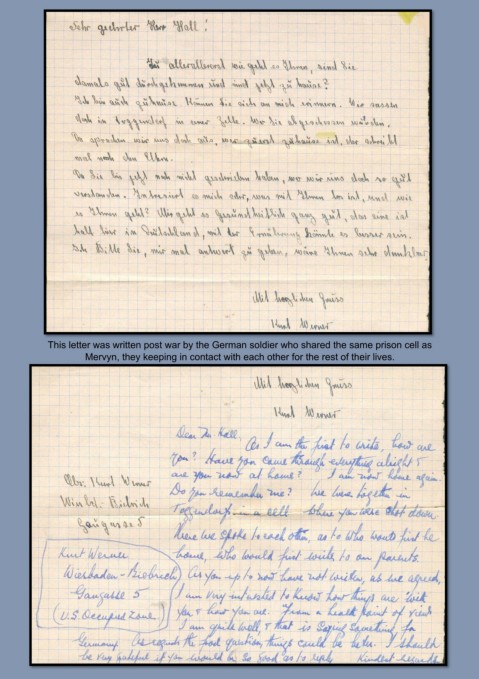 Sehr geehrter Herr Hall!
Zu allererst wie geht es Ihnen, sind Sie
damals gut durchgekommen und jetzt zuhause?
Ich bin auch zuhause können Sie sich an mich erinnern. Wir sassen
doch in in einer Zelle. Wo Sie abgeschossen wurden.
Da sprachen wir uns doch aus, wer zuerst zuhause ist, der schreibt
mal nach den Eltern.
Da Sie bis jetzt noch nicht geschrieben haben, wo wir uns doch so gut
verstanden. Interesiert mich oder, was mit Ihnen los ist, und wie
es Ihnen geht? geht es gesundheitlich ganz gut, das eine ist
halt hier in Deutschland, mit der Ernährung könnte es besser sein.
Ich bitte Sie, mir mal antwort zu geben, wäre Ihnen sehr dankbar.
Mit herzlichen Grüss
Kurt Werner
This letter was written post war by the German soldier who shared the same prison cell as
Mervyn, they keeping in contact with each other for the rest of their lives.
Mit herzlichen Grüss
Kurt Werner
Abs. Kurt Werner
Wiesb.- Biebrich
Gaugasse 5
Kurt Werner
Wiesbaden-Biebrich
Gaugasse 5
(U.S. Occupied Zone)
Dear Mr Hall,
As I am the first to write, how are
you? Have you came through everything alright &
are you now at home? I am now home again.
Do you remember me? We were together in
in a cell where you were shot down
Here we spoke to each other, as to who would first be
home, who would first write to our parents.
As you up to now have not written, as we agreed,
I am very interested to know how things are with
you & how you are. From a health point of view
I am quite well, & that is saying something for
Germany. As regards the food question, things could be better. I should
be very grateful if you would be so good as to reply
Kindest regards